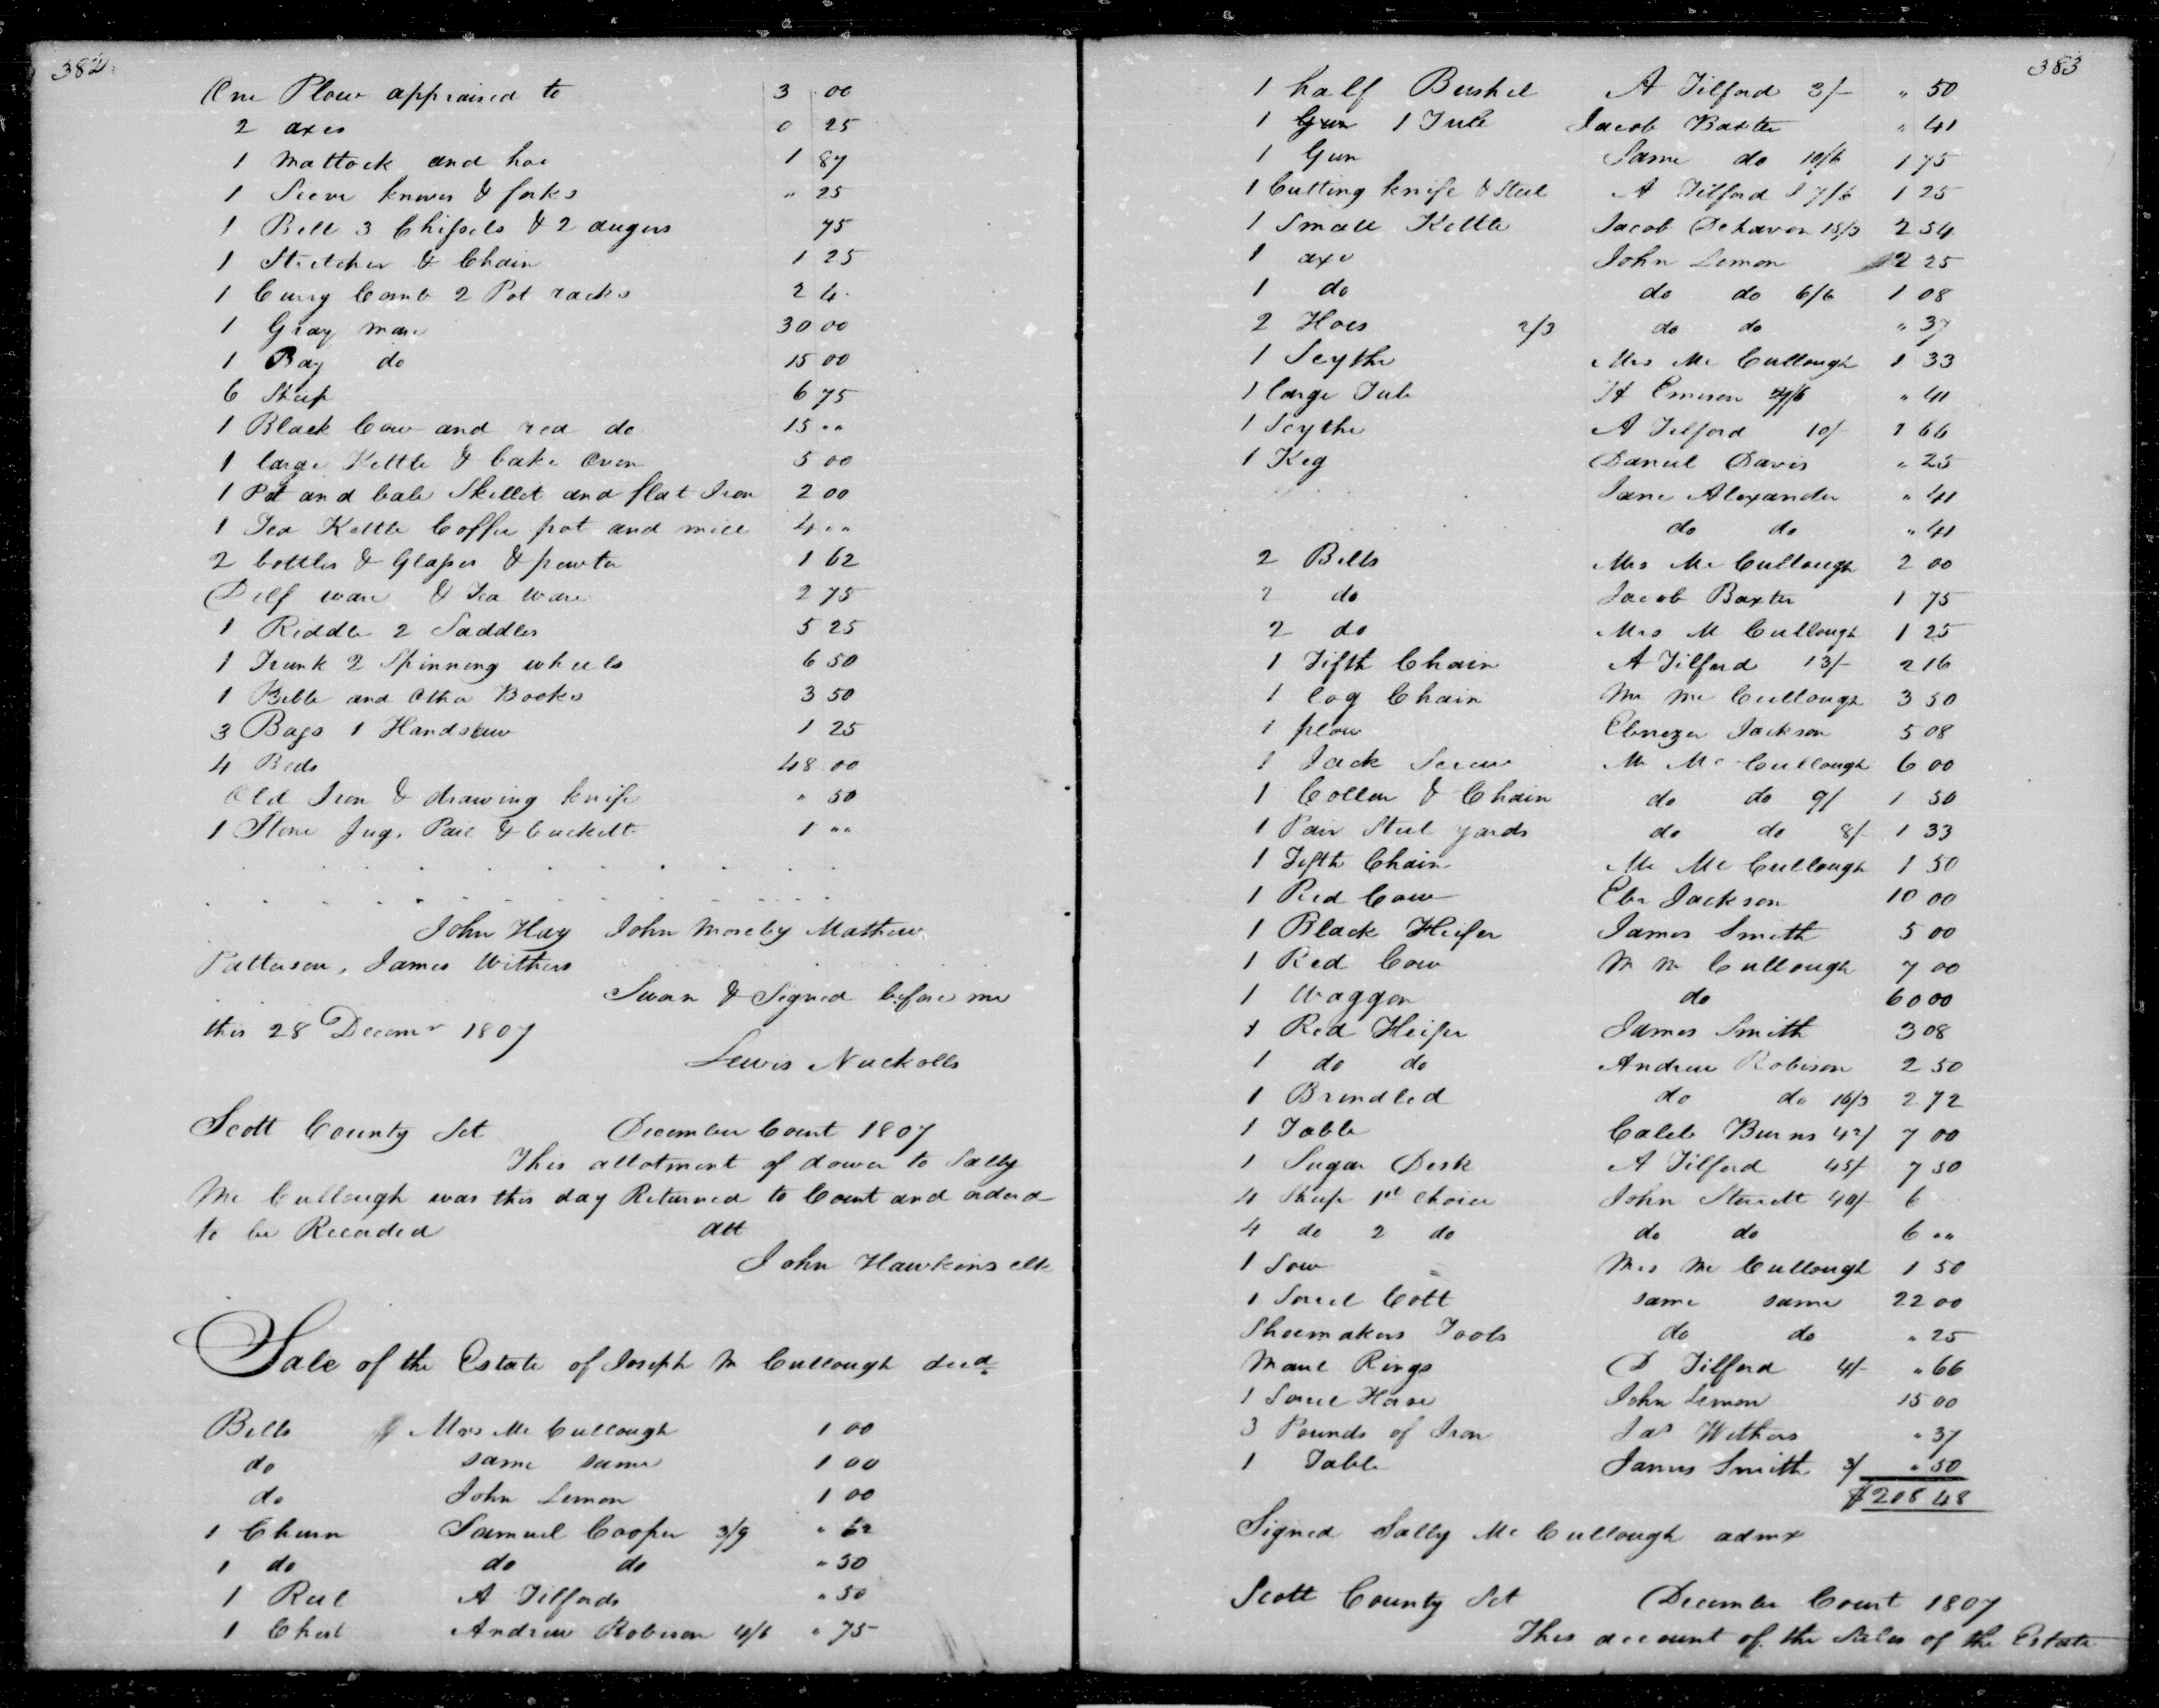 382
One Plow appraised to 3 00
2 axes 0 25
1 Mattock and hoe 1 87
1 Sieve knives & forks " 25
1 Bell 3 Chissels & 2 augers 75
1 Stretcher & Chain 1 25
1 Curry Comb 2 Pot racks 2 4
1 Gray mare 30 00
1 Bay do 15 00
6 Sheep 6 75
1 Black Cow and red do 15 ""
1 large Kettle & bake Oven 5 00
1 Pot and bale Skillet and flat Iron 2 00
1 Tea Kettle Coffee pot and mill 4 ""
2 bottles & Glasses & pewter 1 62
Delf ware & Tea ware 2 75
1 Riddle 2 Saddles 5 25
1 Trunk 2 Spinning wheels 6 50
1 Bible and Other Books 3 50
3 Bags 1 Handsaw 1 25
4 Beds 48 00
Old Iron & drawing knife " 50
1 Stone Jug, Pail & buckett 1 ""
John Hay John Moseby Mathew
Patterson, James Withers
Sworn & Signed before me
this 28 Decemr 1807
Lewis Nuckolls
Scott County Sct December Court 1807
This allotment of dower to Sally
Mc Cullough was this day Returned to Court and orderd
to be Recorded att
John Hawkins clk
Sale of the Estate of Joseph M Cullough decd
Bells Mrs Mc Cullough 1 00
do same same 1 00
do John Lemon 1 00
1 Churn Samuel Cooper 3/9 " 62
1 do do do " 50
1 Reel A Tilfords " 50
1 Chest Andrew Robison 4/6 " 75
383
1 half Bushel A Tilford 3/- " 50
1 Gun 1 Tub Jacob Baxter " 41
1 Gun Same do 10/6 1 75
1 Cutting knife & Steel A Tilford 7/6 1 25
1 Small Kettle Jacob Dehaven 15/3 2 54
1 axe John Lemon 2 25
1 do do do 6/6 1 08
2 Hoes 2/3 do do " 37
1 Scythe Mrs Mc Cullough 1 33
1 large Tub H Emerson 2/6 " 41
1 Scythe A Tilford 10/ 1 66
1 Keg Daniel Davis " 25
Jane Alexander " 41
do do " 41
2 Bells Mrs Mc Cullough 2 00
2 do Jacob Baxter 1 75
2 do Mrs M Cullough 1 25
1 Fifth Chain A Tilford 13/- 2 16
1 log Chain Mr Mc Cullough 3 50
1 plow Ebenezer Jackson 5 08
1 Jack Screw Mr Mc Cullough 6 00
1 Coller & Chain do do 9/ 1 50
1 Pair Steel yards do do 8/- 1 33
1 Fifth Chain Mr Mc Cullough 1 50
1 Red Cow Ebr Jackson 10 00
1 Black Heifer James Smith 5 00
1 Red Cow M Mc Cullough 7 00
1 Waggon do 60 00
1 Red Heifer James Smith 3 08
1 do do Andrew Robison 2 50
1 Brindled do do 16/3 2 72
1 Table Caleb Burns 42/ 7 00
1 Sugar Desk A Tilford 45/ 7 50
4 Sheep 1st Choice John Sterett 40/- 6
4 do 2 do do do 6 ""
1 Sow Mrs Mc Cullough 1 50
1 Sorrel Colt same same 22 00
Shoemakers Tools do do " 25
Maul Rings D Tilford 4/- " 66
1 Sorrel Horse John Lemon 15 00
3 Pounds of Iron Jas Withers " 37
1 Table James Smith 3/ " 50
$208 48
Signed Sally Mc Cullough admx
Scott County Sct December Court 1807
This account of the Sales of the Estate